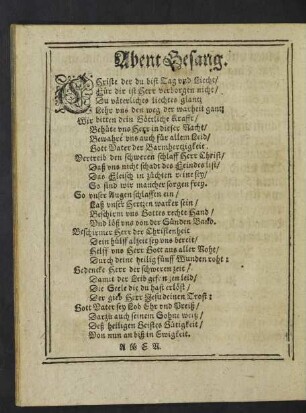 Abent Gesang.
CHriste der du bist Tag vnd Liecht/
Für dir ist Herr verborgen nicht/
Du väterliches liechtes glantz
Lehr vns den weg der warheit gantz
Wir bitten dein Göttliche Krafft/
Behüte vns Herr in dieser Nacht/
Bewahre vns auch für allem Leid/
Gott Vater der Barmhertzigkeit.
Vertreib den schweren schlaff Herr Christ/
Daß vns nicht schad des Feindes list/
Das Fleisch in züchten reine sey/
So sind wir mancher sorgen frey.
So vnser Augen schlaffen ein/
Laß vnser Hertzen wacker sein/
Beschirm vns Gottes rechte Hand/
Vnd löß vns von der Sünden Band.
Beschirmer Herr der Christenheit
Dein hülff alzeit sey vns bereit/
Helff vns Herr Gott aus aller Noht/
Durch deine heilig fünff Wunden roht:
Gedencke Herr der schweren zeit/
Damit der Leib gefangen leid/
Die Seele die du hast erlöst/
Der gieb Herr Jesu deinen Trost:
Gott Vater sey Lob Ehr vnd Preiß/
Darzu auch seinem Sohne weiß/
Deß heiligen Geistes Gütigkeit/
Von nun an biß in Ewigkeit.
AMEN.